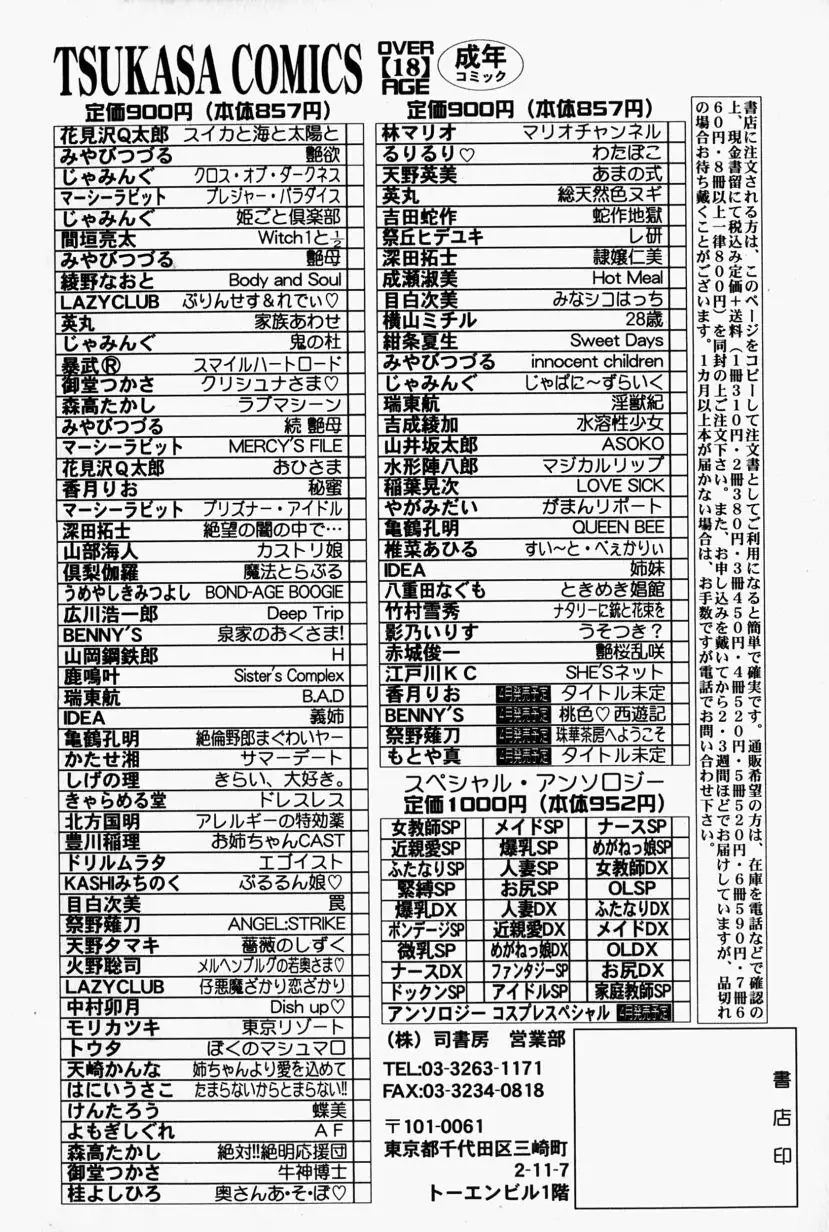 TSUKASA COMICS
OVER
【18】
AGE
成年
コミック
定価900円（本体857円）
花見沢Q太郎 スイカと海と太陽と
みやびつづる 艶欲
じゃみんぐ クロス・オブ・ダークネス
マーシーラビット プレジャー・パラダイス
じゃみんぐ 姫ごと倶楽部
間垣亮太 Witch1と½
みやびつづる 艶母
綾野なおと Body and Soul
LAZYCLUB ぷりんせす＆れでぃ♡
英丸 家族あわせ
じゃみんぐ 鬼の杜
暴武Ⓡ スマイルハートロード
御堂つかさ クリシュナさま♡
森高たかし ラブマシーン
みやびつづる 続 艶母
マーシーラビット MERCY'S FILE
花見沢Q太郎 おひさま
香月りお 秘蜜
マーシーラビット プリズナー・アイドル
深田拓士 絶望の闇の中で…
山部海人 カストリ娘
倶梨伽羅 魔法とらぶる
うめやしきみつよし BOND-AGE BOOGIE
広川浩一郎 Deep Trip
BENNY'S 泉家のおくさま!
山岡鋼鉄郎 H
鹿鳴叶 Sister's Complex
瑞東航 B.A.D
IDEA 義姉
亀鶴孔明 絶倫野郎まぐわいヤー
かたせ湘 サマーデート
しげの理 きらい、大好き。
きゃらめる堂 ドレスレス
北方国明 アレルギーの特効薬
豊川稲理 お姉ちゃんCAST
ドリルムラタ エゴイスト
KASHIみちのく ぷるるん娘♡
目白次美 罠
祭野薙刀 ANGEL:STRIKE
天野タマキ 薔薇のしずく
火野聡司 メルヘンブルグの若奥さま♡
LAZYCLUB 仔悪魔ざかり恋ざかり
中村卯月 Dish up♡
モリカツキ 東京リゾート
トウタ ぼくのマシュマロ
天崎かんな 姉ちゃんより愛を込めて
はにいうさこ たまらないからとまらない!!
けんたろう 蝶美
よもぎしぐれ AF
森高たかし 絶対!!絶明応援団
御堂つかさ 牛神博士
桂よしひろ 奥さんあ・そ・ぼ♡
定価900円（本体857円）
林マリオ マリオチャンネル
るりるり♡ わたぼこ
天野英美 あまの式
英丸 総天然色ヌギ
吉田蛇作 蛇作地獄
祭丘ヒデユキ レ研
深田拓士 隷嬢仁美
成瀬淑美 Hot Meal
目白次美 みなシコはっち
横山ミチル 28歳
紺条夏生 Sweet Days
みやびつづる innocent children
じゃみんぐ じゃぱに～ずらいく
瑞東航 淫獣紀
吉成綾加 水溶性少女
山井坂太郎 ASOKO
水形陣八郎 マジカルリップ
稲葉晃次 LOVE SICK
やがみだい がまんリポート
亀鶴孔明 QUEEN BEE
椎菜あひる すい～と・べぇかりぃ
IDEA 姉妹
八重田なぐも ときめき娼館
竹村雪秀 ナタリーに銃と花束を
影乃いりす うそつき？
赤城俊一 艶桜乱咲
江戸川KC SHE'Sネット
香月りお 4月発売予定 タイトル未定
BENNY'S 4月発売予定 桃色♡西遊記
祭野薙刀 4月発売予定 珠華茶房へようこそ
もとや真 4月発売予定 タイトル未定
スペシャル・アンソロジー
定価1000円（本体952円）
女教師SP メイドSP ナースSP
近親愛SP 爆乳SP めがねっ娘SP
ふたなりSP 人妻SP 女教師DX
緊縛SP お尻SP OLSP
爆乳DX 人妻DX ふたなりDX
ボンデージSP 近親愛DX メイドDX
微乳SP めがねっ娘DX OLDX
ナースDX ファンタジーSP お尻DX
ドックンSP アイドルSP 家庭教師SP
アンソロジー コスプレスペシャル 4月発売予定
（株）司書房 営業部
TEL:03-3263-1171
FAX:03-3234-0818
〒101-0061
東京都千代田区三崎町
2-11-7
トーエンビル1階
書店に注文される方は、このページをコピーして注文書としてご利用になると簡単で確実です。通販希望の方は、在庫を電話などで確認の
上、現金書留にて税込み定価＋送料（1冊310円・2冊380円・3冊450円・4冊520円・5冊520円・6冊590円・7冊6
60円・8冊以上一律800円）を同封の上ご注文下さい。また、お申し込みを戴いてから2・3週間ほどでお届けしていますが、品切れ
の場合お待ち戴くことがございます。1カ月以上本が届かない場合は、お手数ですが電話でお問い合わせ下さい。
書店印